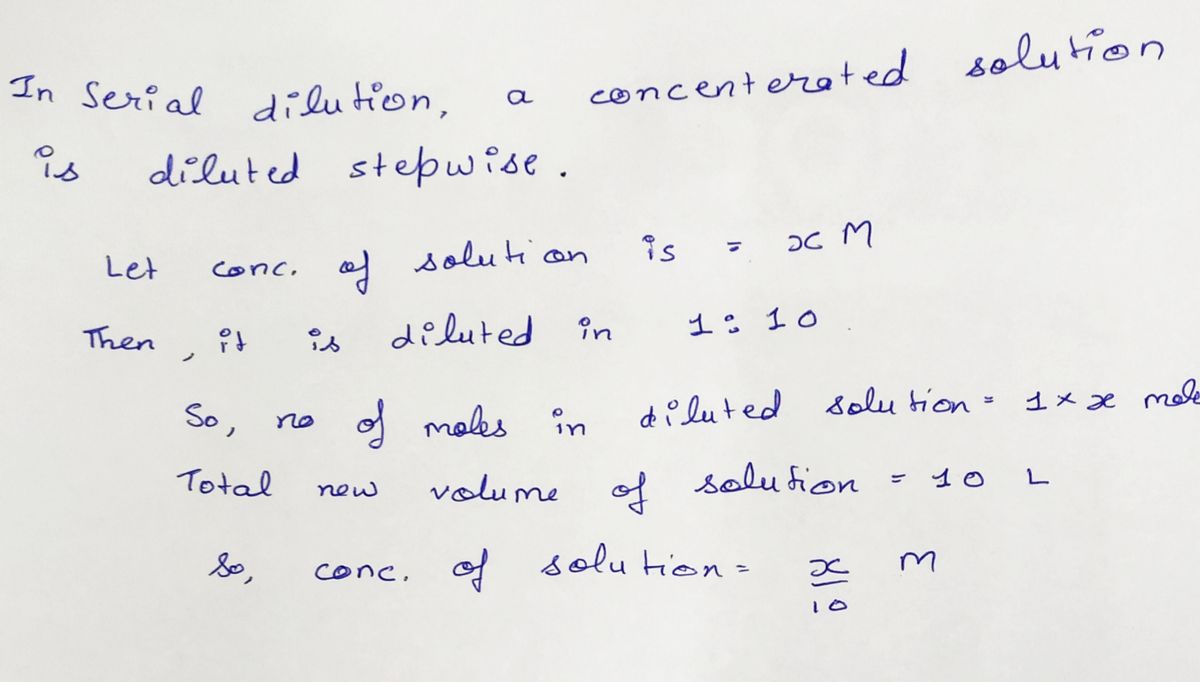 In Serial dilution, a concenterated solution
is diluted stepwise.
Let conc. of solution is = x M
Then, it is diluted in 1:10.
So, no of moles in diluted solution = 1 × x mole
Total new volume of solution = 10 L
So, conc. of solution = x/10 M